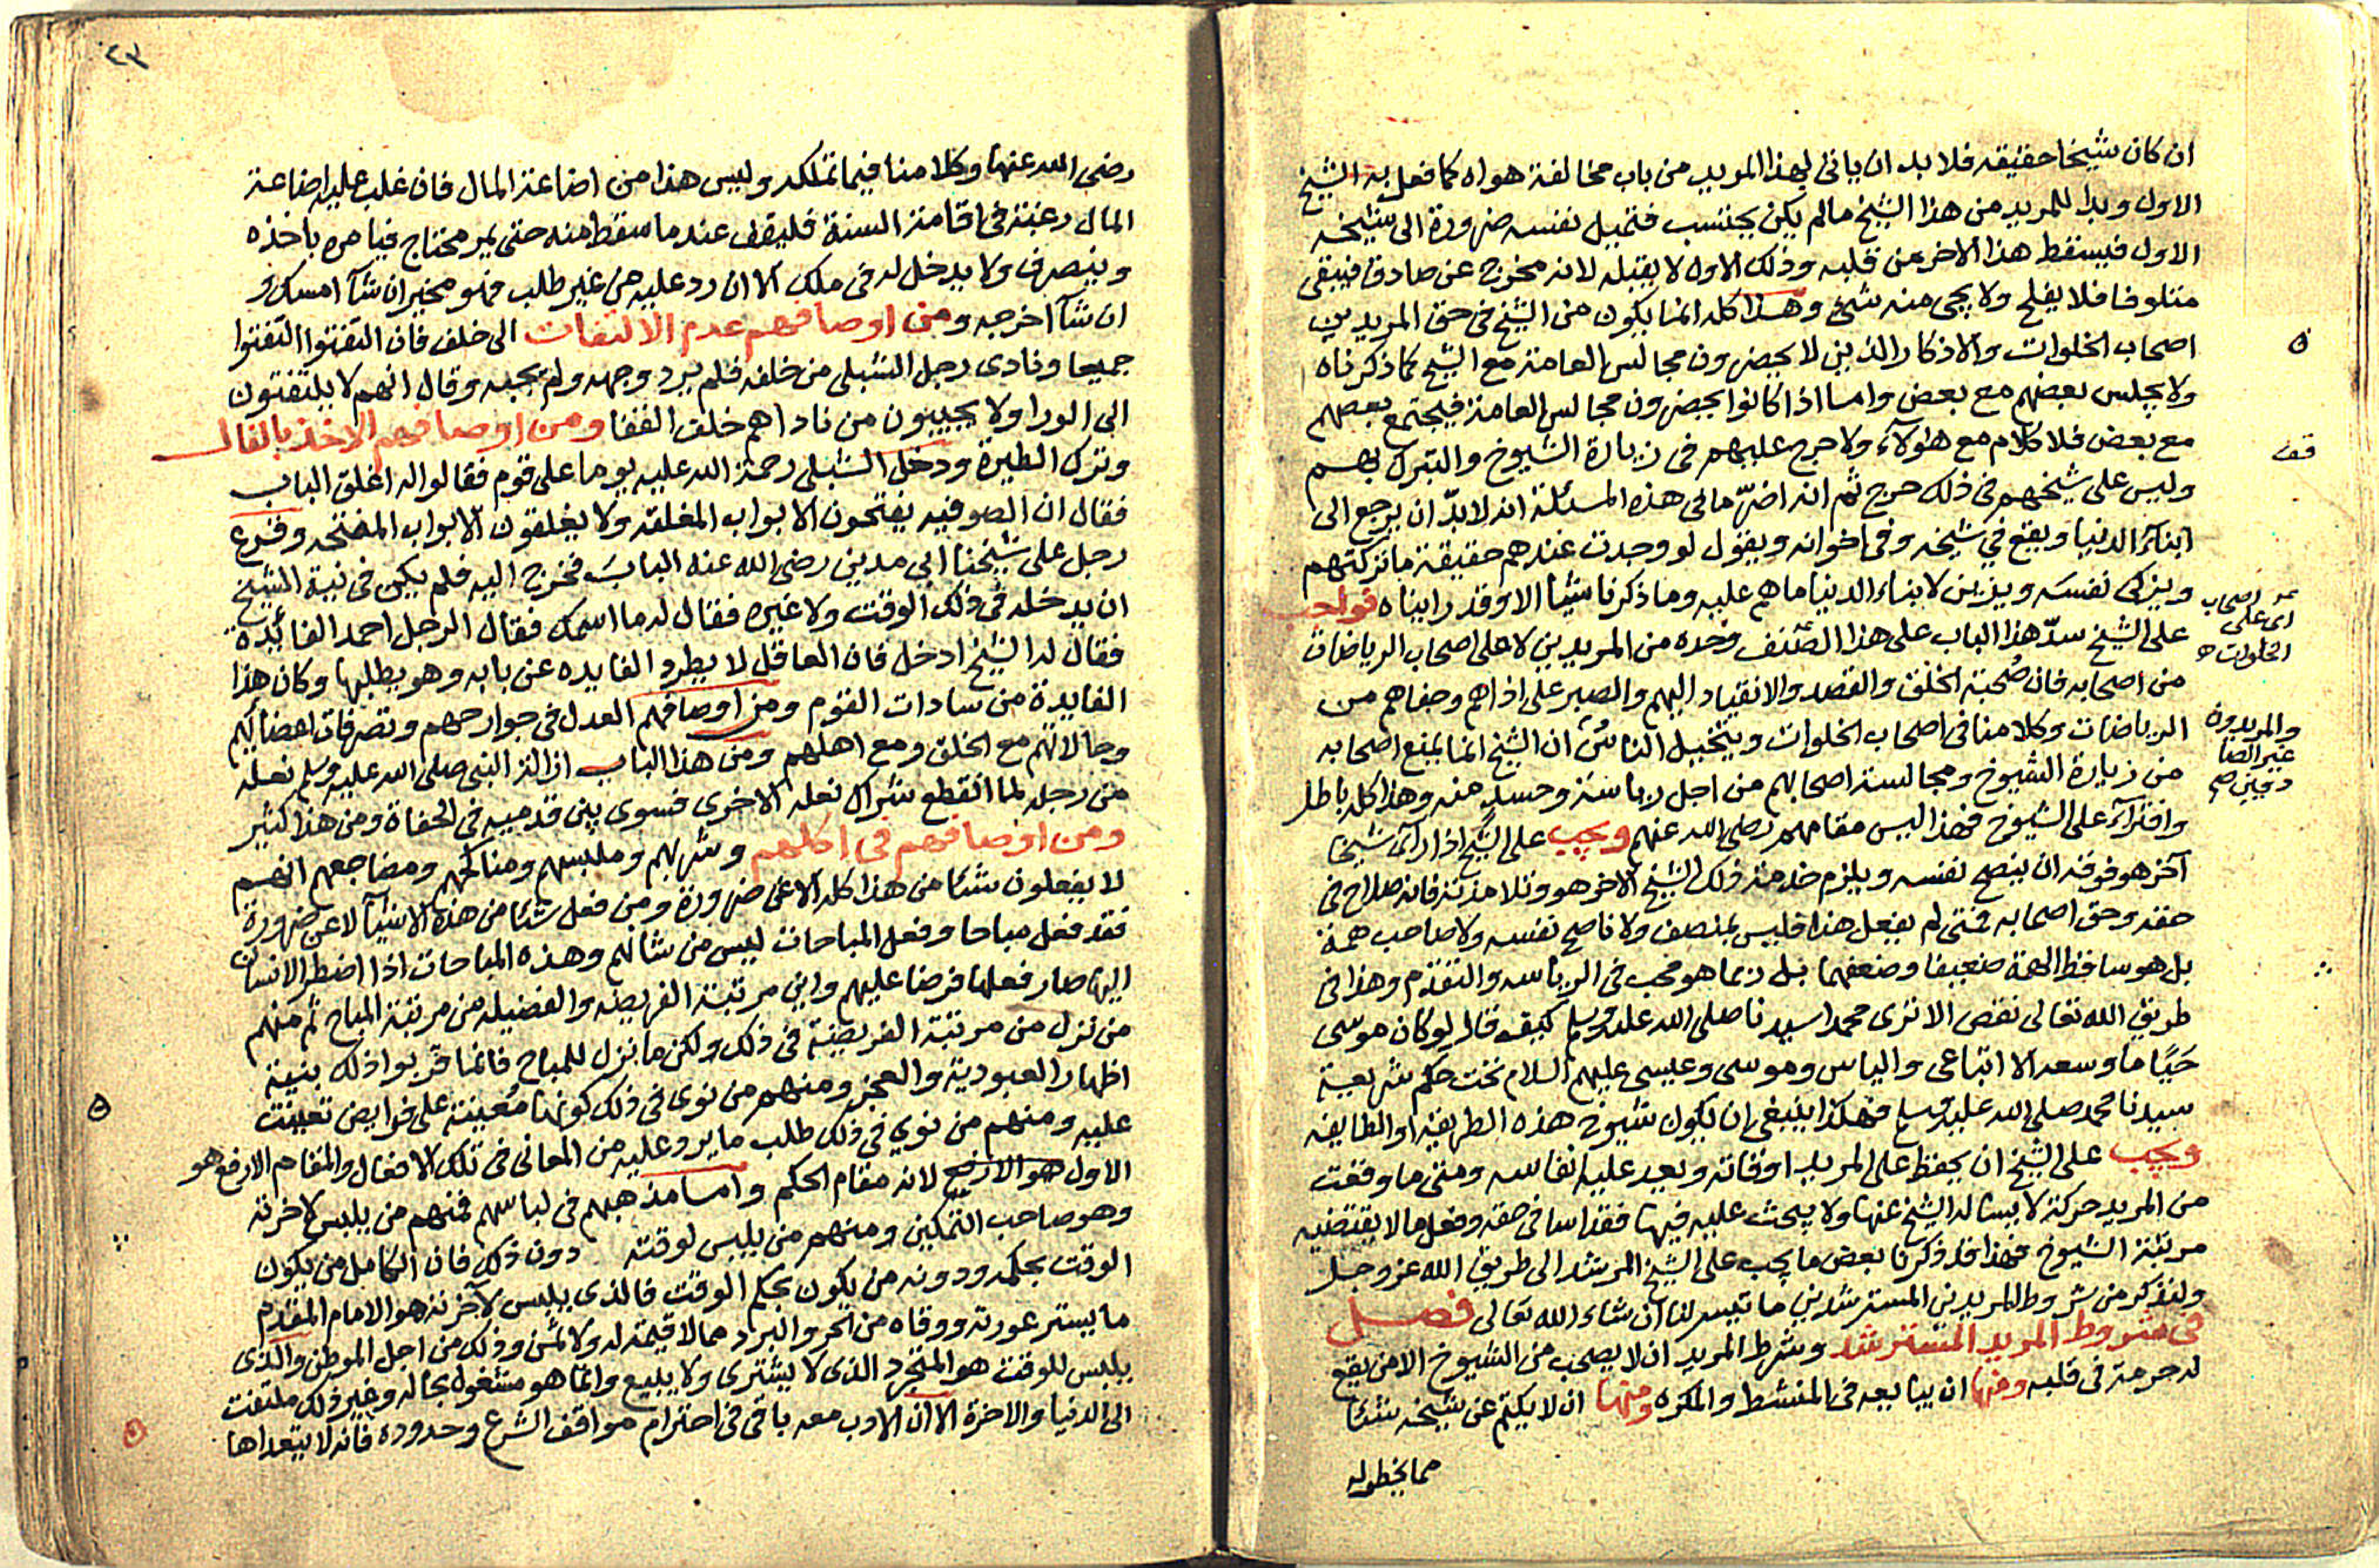 ان كان شيخا حقيقه فلا بد ان ياتى لهذا المريد من باب مخالفة هواه كما فعل به الشيخ
الاول وبدا للمريد من هذا الشيخ مالم يكن يحتسب فتميل نفسه ضرورة الى شيخه
الاول فيسقط هذا الاخر من قلبه وذلك الاول لا يقبله لانه مخروج عن صادق فيبقى
متلوفا فلا يفلح ولا يجى منه شئ وهذا كله انما يكون من الشيخ فى حق المريدين
اصحاب الخلوات والاذكار الذين لا يحضرون مجالس العامة مع الشيخ كما ذكرناه
ولا يجلس بعضهم مع بعض واما اذا كانوا يحضرون مجالس العامة فيجتمع بعضهم
مع بعض فلا كلام مع هؤلاء ولا حرج عليهم فى زيارة الشيوخ والتبرك بهم
وليس على شيخهم فى ذلك حرج ثم انه اضرّ مالى هذه المسئلة انه لا بدّ ان يرجع الى
ابناء الدنيا ويقع في شيخه وفى اخوانه ويقول لو وجدت عندهم حقيقة ما تركتهم
ويزكى نفسه ويزين لابناء الدنيا ما هم عليه وما ذكرنا شيئا الا وقد رايناه فواجب
على الشيخ سدّ هذا الباب على هذا الصنف وحده من المريدين لا على اصحاب الرياضات
من اصحابه فان صُحبة الخلق والقصد والانقياد اليهم والصبر على اذاهم وجفاهم من
الرياضات وكلامنا فى اصحاب الخلوات ويتخيل الناس ان الشيخ انما يمنع اصحابه
من زيارة الشيوخ ومجالسة اصحابهم من اجل رياسة وحسد منه وهذا كله باطل
وافتراء على الشيوخ فهذا ليس مقامهم رضى الله عنهم ويجب على الشيخ اذا راى شيخا
آخر هو فوقه ان ينصح نفسه ويلزم خدمة ذلك الشيخ الاخر هو وتلامذته فانه صلاح فى
حقه وحق اصحابه فمتى لم يفعل هذا فليس بمنصف ولا ناصح نفسه ولا صاحب همة
بل هو ساقط الهمة ضعيفا وضعفها بل ربما هو محب فى الرياسه والتقدم وهذا فى
طريق الله تعالى نقص الا ترى محمدا سيدنا صلى الله عليه وسلم كيف قال لو كان موسى
حَيًّا ما وسعه الا اتباعى والياس وموسى وعيسى عليهم السلام تحت حكم شريعة
سيدنا محمد صلى الله عليه وسلم فهكذا ينبغى ان يكون شيوخ هذه الطريقه او الطايفه
ويجب على الشيخ ان يحفظ على المريد اوقاته ويعد عليه انفاسه ومتى ما وقعت
من المريد حركة لا يساله الشيخ عنها ولا يبحث عليه فيها فقد اسا فى حقه وفعل ما لا يقتضيه
مرتبة الشيوخ فهذا قد ذكرنا بعض ما يجب على الشيخ المرشد الى طريق الله عز وجل
ولنذكر من شروط المريدين المسترشدين ما تيسر لنا ان شاء الله تعالى فصل
فى شروط المريد المسترشد وشرط المريد ان لا يصحب من الشيوخ الا من يقع
له حرمة فى قلبه ومنها ان يبايعه فى المنشط والمكره ومنها ان لا يكتم عن شيخه شيئا
مما يخطر له
قف
اى على اصحاب
الخلوات
والمريدون
غير الصا
دقين صح
٢٣
رضى الله عنها وكلامنا فيما تملكه وليس هذا من اضاعة المال فان غلب عليه اضاعة
المال رغبة فى اقامة السنة فليقف عند ما سقط منه حتى يمر محتاج فيامره باخذه
وينصرف ولا يدخله فى ملكه الا ان رد عليه من غير طلب فهو مخير ان شآ امسكه و
ان شآ اخرجه ومن اوصافهم عدم الالتفات الى خلف فان التفتوا التفتوا
جميعا ونادى رجل الشبلى من خلفه فلم يرد وجهه ولم يجبه وقال انهم لا يلتفتون
الى الورا ولا يجيبون من ناداهم خلف القفا ومن اوصافهم الاخذ بالفال
وترك الطيرة ودخل الشبلى رحمة الله عليه يوما على قوم فقالوا له اغلق الباب
فقال ان الصوفيه يفتحون الابواب المغلقه ولا يغلقون الابواب المفتحه وقرع
رجل على شيخنا ابى مدين رضى الله عنه الباب فخرج اليه فلم يكن فى نية الشيخ
ان يدخله فى ذلك الوقت ولا غيره فقال له ما اسمك فقال الرجل احمد الفائده
فقال له الشيخ ادخل فان العاقل لا يطرد الفايده عن بابه وهو يطلبها وكان هذا
الفايدة من سادات القوم ومن اوصافهم العدل فى جوارحهم وتصرفات اعضايهم
وحالاتهم مع الخلق ومع اهلهم ومن هذا الباب ازالة النبى صلى الله عليه وسلم نعله
من رجله لما انقطع شراك نعله الاخرى فسوى بين قدميه فى الحفاة ومن هذا كثير
ومن اوصافهم فى اكلهم وشربهم وملبسهم ومناكحهم ومضاجعهم انهم
لا يفعلون شئا من هذا كله الا عن ضرورة ومن فعل شئا من هذه الاشيآ لا عن ضرورة
فقد فعل مباحا وفعل المباحات ليس من شانهم وهذه المباحات اذا اضطر الانسان
اليها صار فعلها فرضا عليهم واين مرتبة الفريضه والفضيله من مرتبة المباح ثم منهم
من نزل من مرتبة الفريضة فى ذلك ولكن ما نزل للمباح فانما قربوا ذلك بنية
اظهار العبودية والعجز ومنهم من نوى فى ذلك كونها مُعينة على فرايض تعينت
عليه ومنهم من نوي في ذلك طلب ما يرد عليه من المعانى فى تلك الافعال والمقام الارفع هو
الاول هو الارفع لانه مقام الحكم واما مذهبهم فى لباسهم فمنهم من يلبس لاخرته
وهو صاحب التمكين ومنهم من يلبس لوقته دون ذلك فان الكامل من يكون
الوقت بحكمه ودونه من يكون بحكم الوقت فالذى يلبس لآخرته هو الامام المقدم
ما يستر عورته ووقاه من الحر والبرد مما لا قيمة له ولا ثمن وذلك من اجل الموطن والذى
يلبس للوقت هو المتجرد الذى لا يشترى ولا يبيع وانما هو مشغول بحاله وغير ذلك ملتفت
الى الدنيا والاخرة الا ان الادب معه باقى فى احترام مواقف الشرع وحدوده فانه لا يتعداها